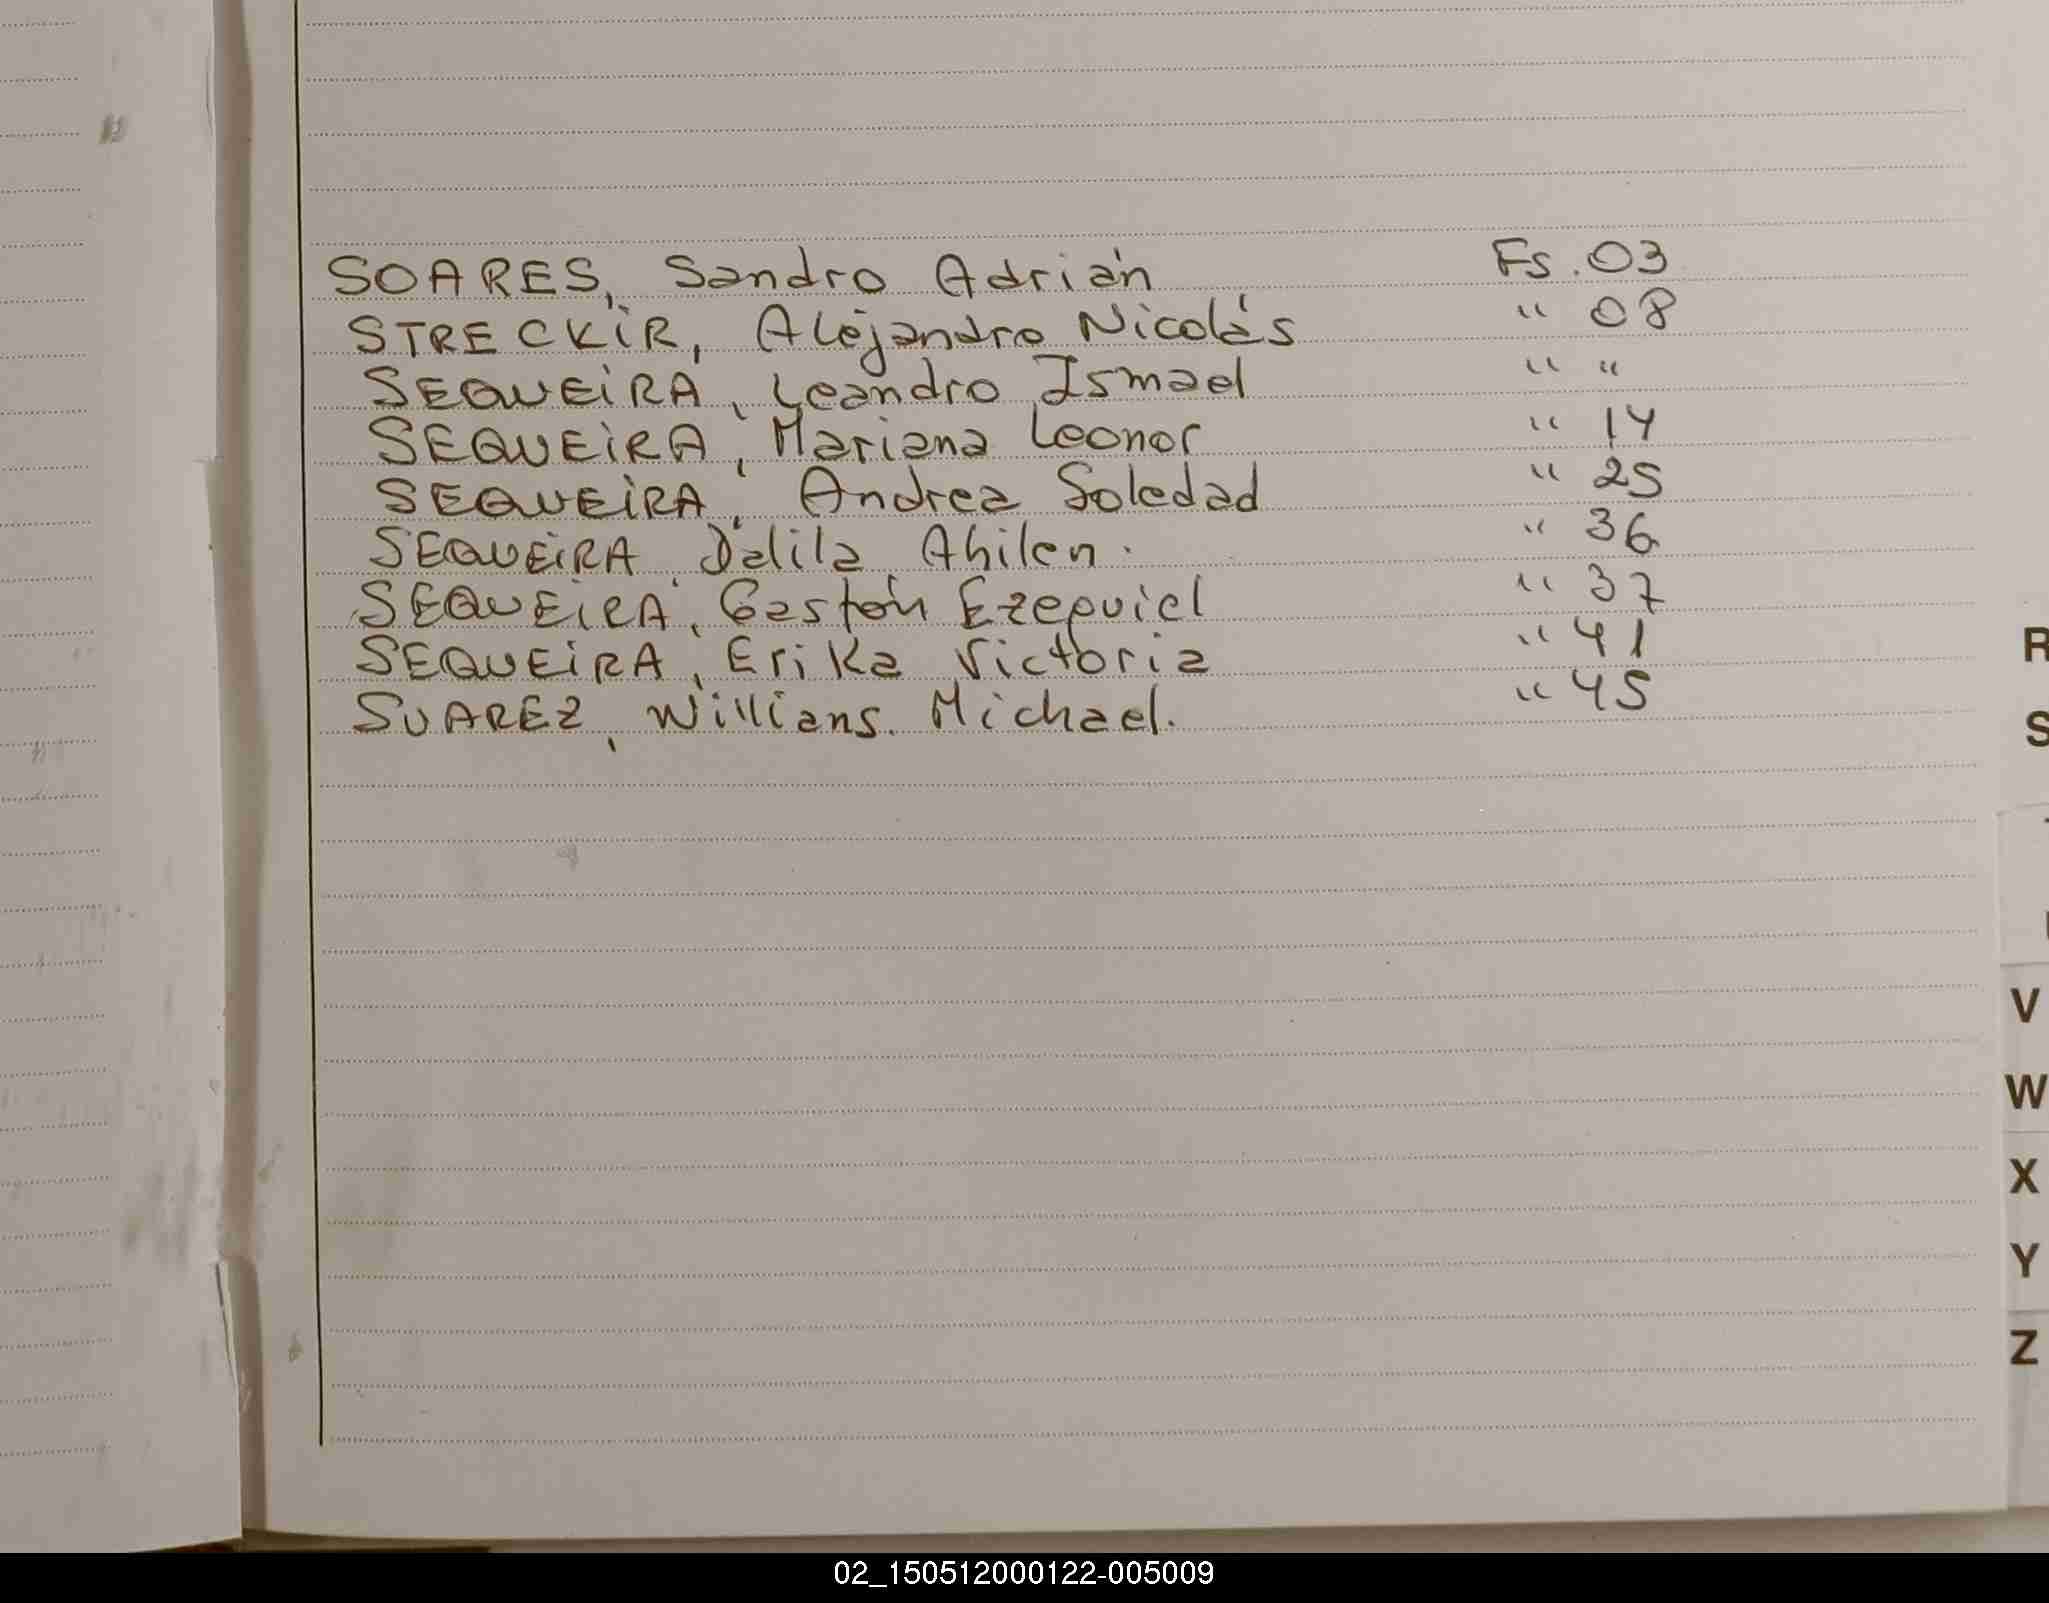 SOARES, Sandro Adrián Fs. 03
STRECKiR, Alejandro Nicolás " 08
SEQUEiRA, Leandro Ismael " "
SEQUEiRA, Mariana Leonor " 14
SEQUEiRA, Andrea Soledad " 25
SEQUEiRA, Dalila Ahilen. " 36
SEQUEiRA, Gastón Ezequiel " 37
SEQUEiRA, Erika Victoria " 41
SUAREZ, Willians. Michael. " 45
R
S
V
W
X
Y
Z
02_150512000122-005009